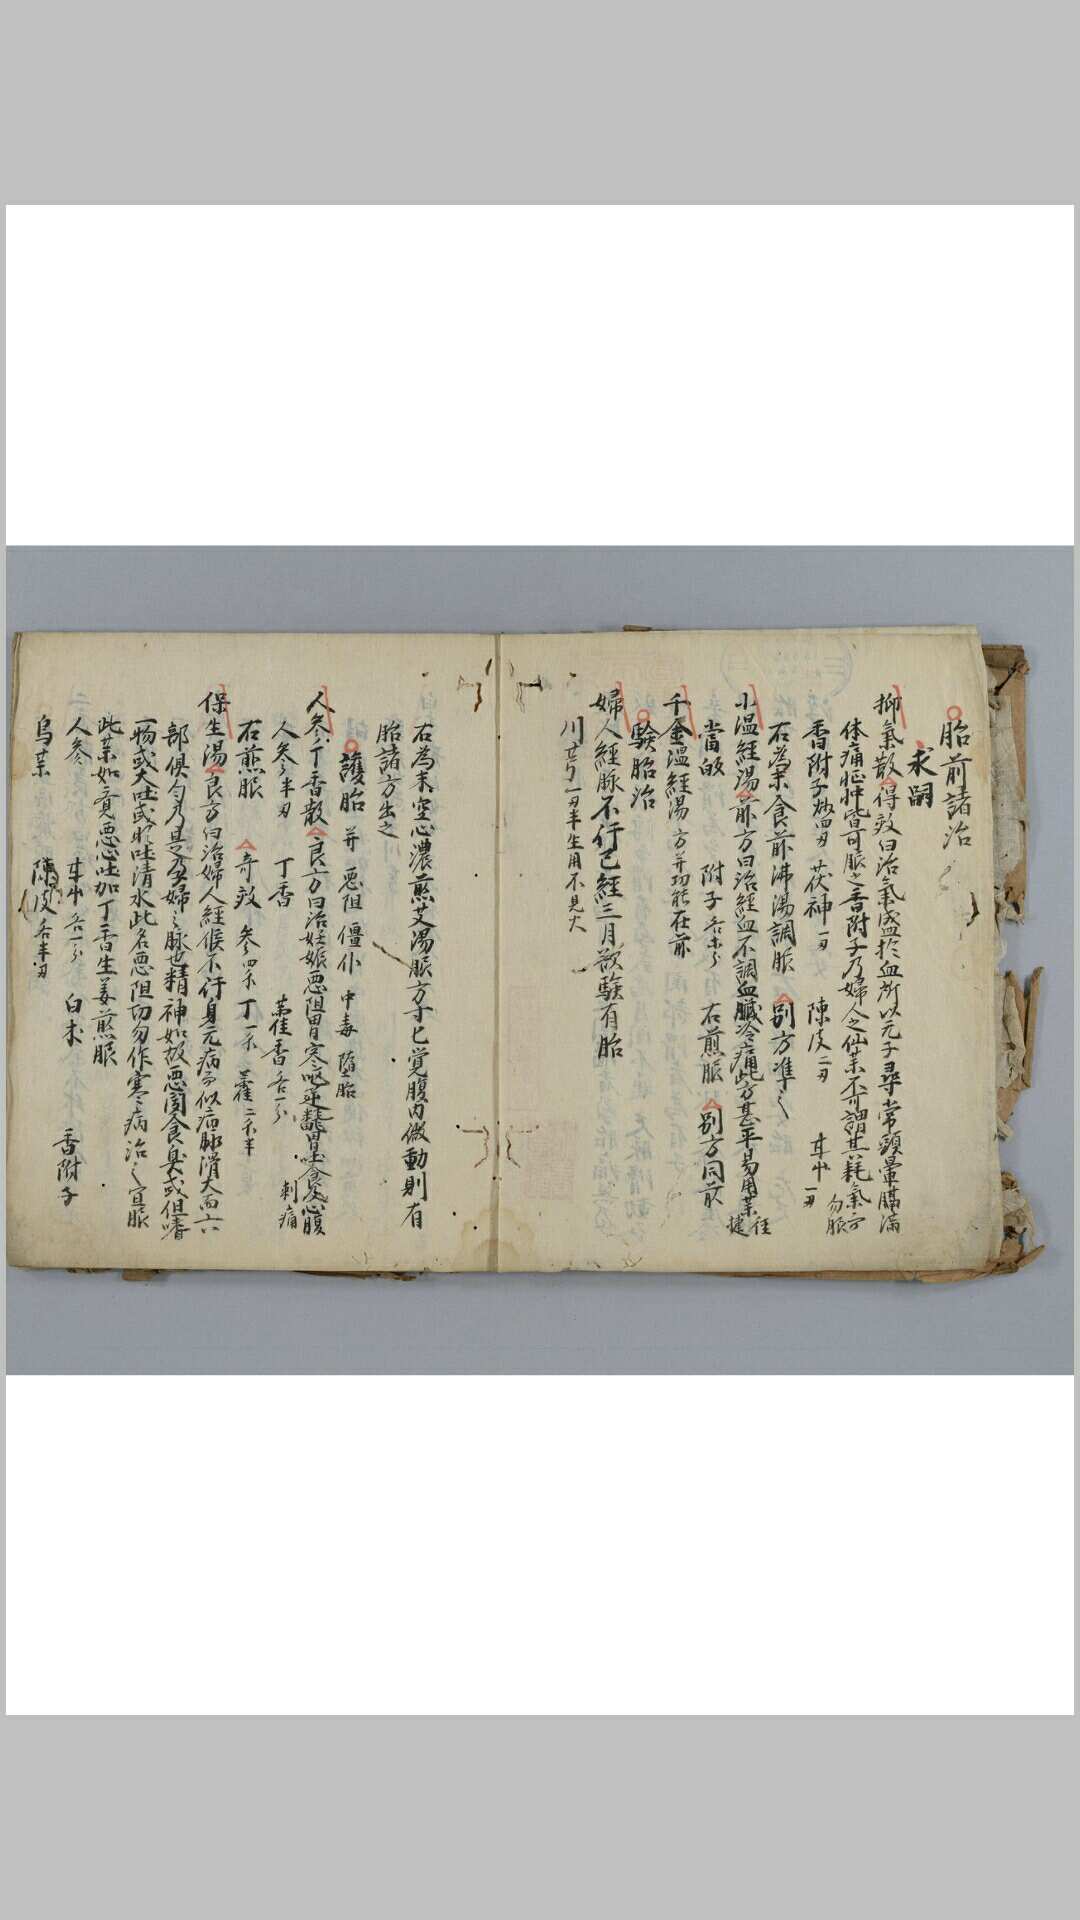 胎前諸治
求嗣
抑氣散 得效曰治氣盛於血所以无子尋常頭暈膈滿
体痛怔忡皆可服之香附子乃婦人之仙薬不可謂其耗氣而
勿服
香附子 四刄 茯神一刄 陳皮二刄 甘草一刄
右為末食前沸湯調服 別方準之
小温経湯 前方曰治経血不調血臓冷痛此方甚平易用薬径
捷
當皈 附子各等分 右煎服 別方同前
千金温経湯 方并功能在前
験胎治
婦人経脉不行已経三月欲験有胎
川芎一刄半生用不見火
右為末空心濃煎艾湯服方寸匕覚腹内微動則有
胎諸方出之
護胎 并 悪阻 僵仆 中毒 墮胎
人参丁香散 良方曰治妊娠悪阻胃寒嘔逆翻胃吐食心腹
刺痛
人参半刄 丁香 藿香各一分
右煎服 奇效 参四 丁一 藿二
保生湯 良方曰治婦人経候不行身无病而似病脉滑大而六
部俱匀乃是孕婦之脉也精神如故悪聞食臭或但嗜
一物或大吐或時吐清水此名悪阻切勿作寒病治之宜服
此薬如覚悪心吐加丁香生姜煎服
人参 甘草各一分 白朮 香附子
烏薬 陳皮各半刄